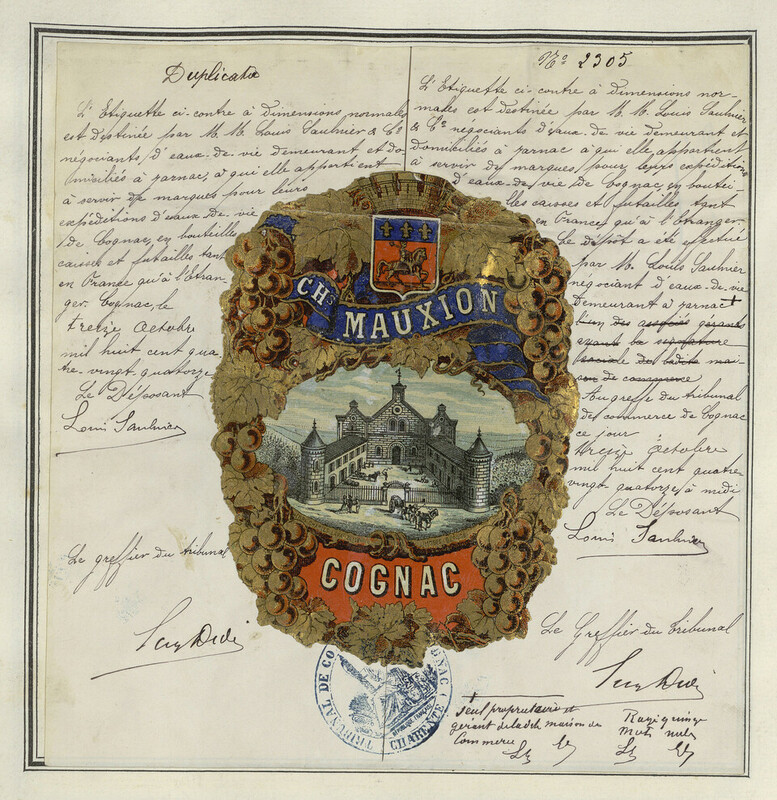 Duplicata
L'Etiquette ci-contre à dimensions normales
est destinée par M. M. Louis Saulnier & Cie
négociants d'eaux-de-vie demeurant et do
miciliés à Jarnac, à qui elle appartient
à servir de marques pour leurs
expéditions d'eaux-de-vie
de Cognac, en bouteilles
caisses et futailles tant
en France qu'à l'Etran
ger. Cognac, le
treize Octobre
mil huit cent qua
tre-vingt-quatorze
Le Déposant
Louis Saulnier
Le greffier du tribunal
No 2305
L'Etiquette ci-contre à dimensions nor-
males est destinée par M. M. Louis Saulnier
& Cie négociants d'eaux-de-vie demeurant et
domiciliés à Jarnac à qui elle appartient
à servir de marques, pour leurs expéditions
d'eaux-de-vie de Cognac, en boutei-
lles caisses et futailles tant
en France qu'à l'Etranger.
Le dépôt a été effectué
par M. Louis Saulnier
négociant d'eaux-de-vie
demeurant à Jarnac +
l'un des associés gérants
ayant la signature
sociale de ladite mai-
son de commerce
au greffe du tribunal
de commerce de Cognac
ce jour
treize Octobre
mil huit cent quatre
vingt quatorze, à midi
Le Déposant
Louis Saulnier
Le Greffier du Tribunal
+ seul propriétaire et
gérant de la dite maison de
Commerce
Rayé quinze
mots nuls
CHs MAUXION
COGNAC
TRIBUNAL DE COMMERCE COGNAC
CHARENTE